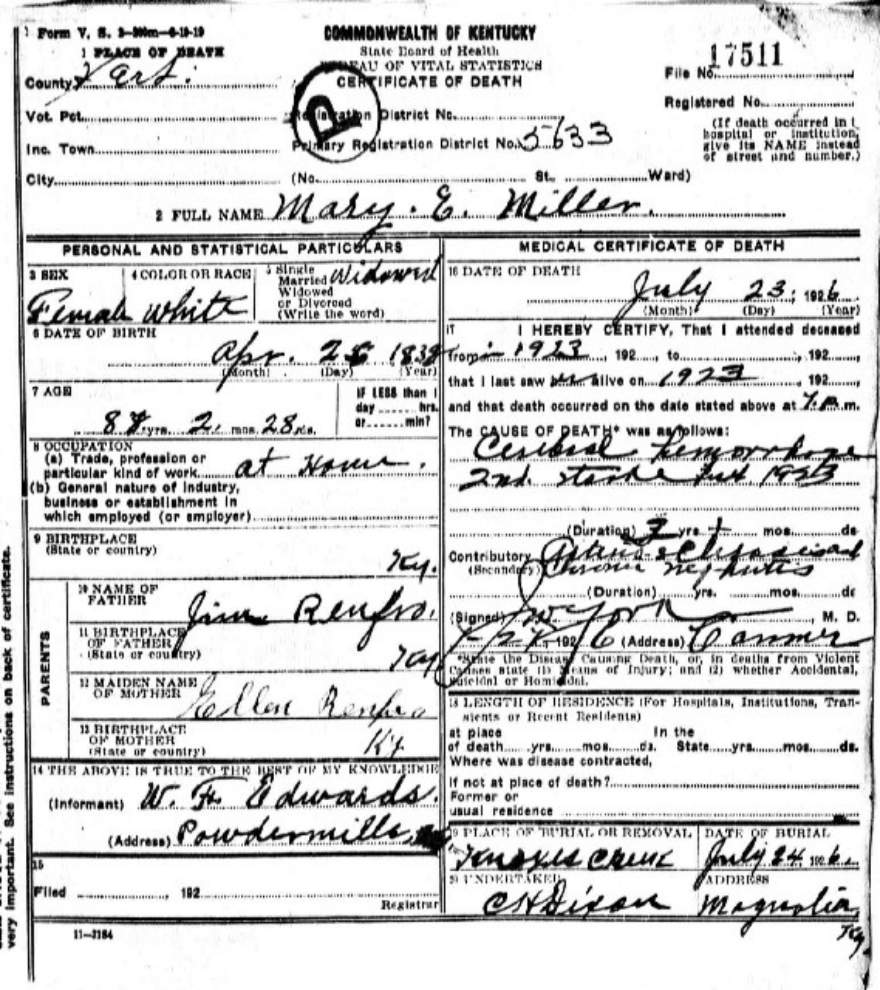 Form V. S. 3-300m-6-19-19
1 PLACE OF DEATH
County Hart.
Vot. Pct.
Inc. Town
City
COMMONWEALTH OF KENTUCKY
State Board of Health
BUREAU OF VITAL STATISTICS
CERTIFICATE OF DEATH
Registration District No.
Primary Registration District No. 5633
(No. St. Ward)
File No. 17511
Registered No.
(If death occurred in a
hospital or institution,
give its NAME instead
of street and number.)
2 FULL NAME Mary. E. Miller.
PERSONAL AND STATISTICAL PARTICULARS
3 SEX
Female
4 COLOR OR RACE
White
5 Single
Married
Widowed
or Divorced
(Write the word)
Widowed
6 DATE OF BIRTH
Apr. 25 1839
(Month) (Day) (Year)
7 AGE
yrs. 2 mos. 28 ds.
IF LESS than 1
day hrs.
or min?
8 OCCUPATION
(a) Trade, profession or
particular kind of work at Home.
(b) General nature of industry,
business or establishment in
which employed (or employer)
9 BIRTHPLACE
(State or country)
Ky.
PARENTS
10 NAME OF
FATHER
Jim Renfro.
11 BIRTHPLACE
OF FATHER
(State or country)
Ky
12 MAIDEN NAME
OF MOTHER
Ellen Renfro
13 BIRTHPLACE
OF MOTHER
(State or country)
Ky
14 THE ABOVE IS TRUE TO THE BEST OF MY KNOWLEDGE
(Informant) W. F. Edwards.
(Address) Powdermills
15
Filed 192
Registrar
11-3184
MEDICAL CERTIFICATE OF DEATH
16 DATE OF DEATH
July 23, 1926
(Month) (Day) (Year)
17 I HEREBY CERTIFY, That I attended deceased
from 1923, 192, to , 192
that I last saw her alive on 1923, 192
and that death occurred on the date stated above at 7. m.
The CAUSE OF DEATH* was as follows:
Cerebral hemorrhage
2nd. stroke 1923
(Duration) 3 yrs mos. ds
Contributory Arterio-Sclerosis and
(Secondary) Chronic Nephritis
(Duration) yrs. mos. ds
(Signed) York, M. D.
192 6 (Address) Canmer
*State the Disease Causing Death, or, in deaths from Violent
Causes state (1) Means of Injury; and (2) whether Accidental,
Suicidal or Homicidal.
18 LENGTH OF RESIDENCE (For Hospitals, Institutions, Tran-
sients or Recent Residents)
at place In the
of death yrs. mos. ds. State yrs. mos. ds.
Where was disease contracted,
If not at place of death?
Former or
usual residence
19 PLACE OF BURIAL OR REMOVAL
Knoxes Creek
DATE OF BURIAL
July 24, 1926
20 UNDERTAKER
C H Dixon
ADDRESS
Magnolia,
Ky.
very important. See instructions on back of certificate.